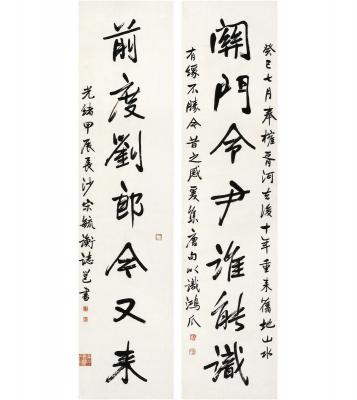 關門令尹誰能識
癸巳七月奉榷齊河去後十年重来舊地山水
有緣不勝今昔之感爰集唐句以識鴻爪
前度劉郎今又来
光緒甲辰長沙宗毓謝誌芑書